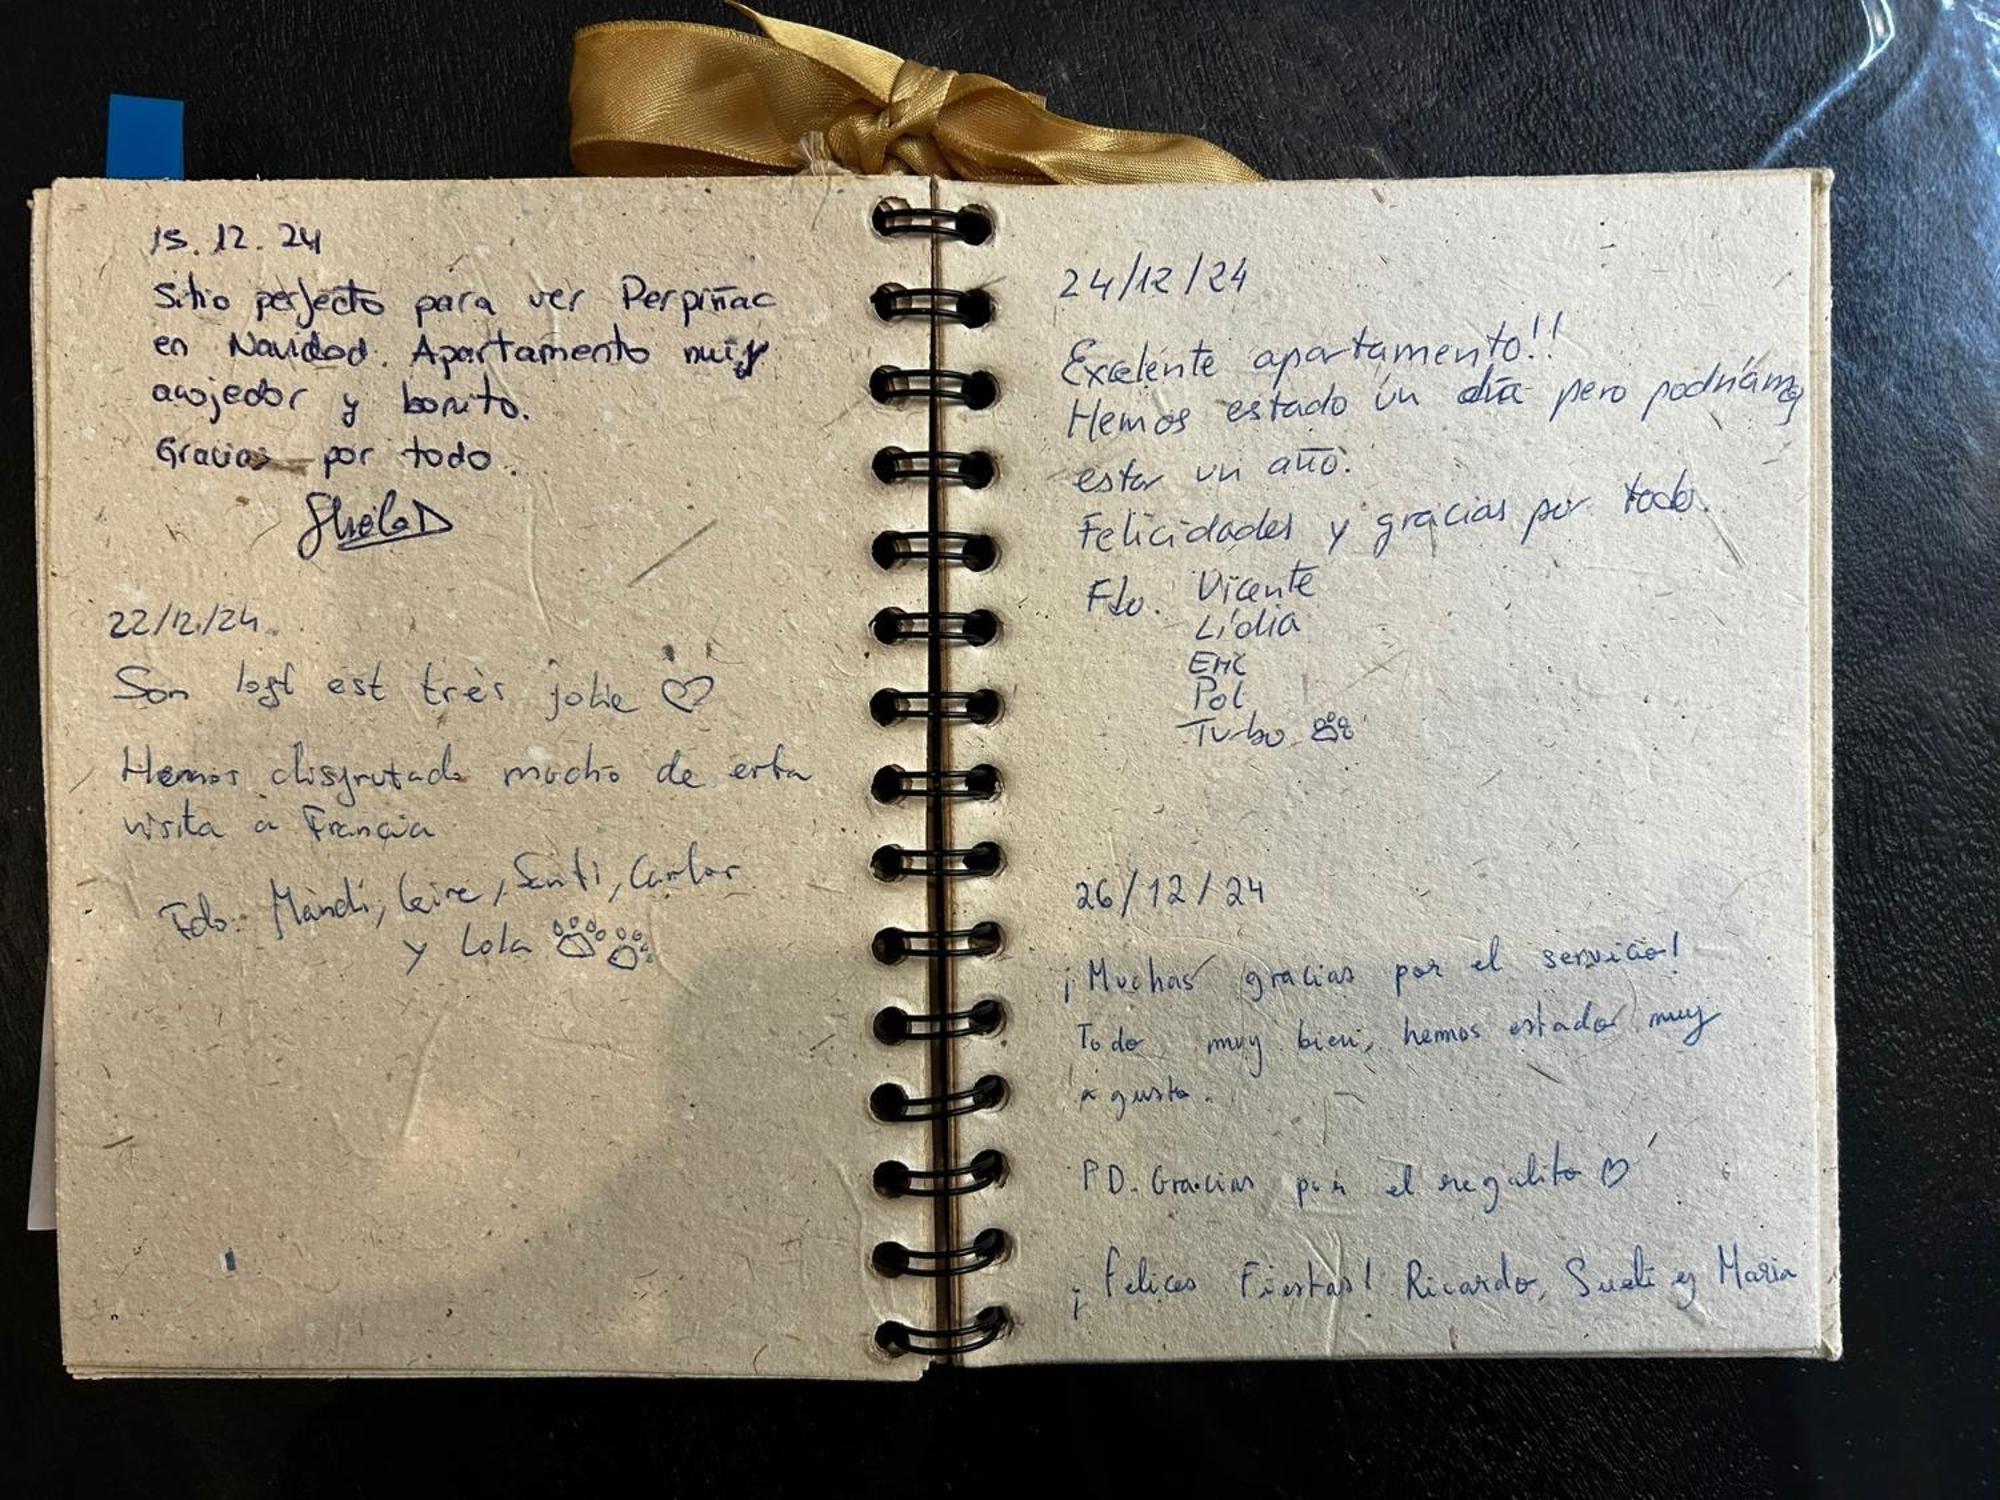 15.12.24
Sitio perfecto para ver Perpiñac
en Navidad. Apartamento muy
acojedor y bonito.
Gracias por todo.
Sheila D
22/12/24.
Son loft est très jolie ♡
Hemos disfrutado mucho de esta
visita a Francia
Fdo: Mandi, Leire, Santi, Carlos
y Lola
24/12/24
Excelente apartamento!!
Hemos estado un día pero podríamos
estar un año.
Felicidades y gracias por todo.
Fdo. Vicente
Lídia
Eric
Pol
Turbo
26/12/24
¡Muchas gracias por el servicio!
Todo muy bien, hemos estado muy
a gusto.
PD. Gracias por el regalito ♡
¡Felices Fiestas! Ricardo, Sueli y Maria